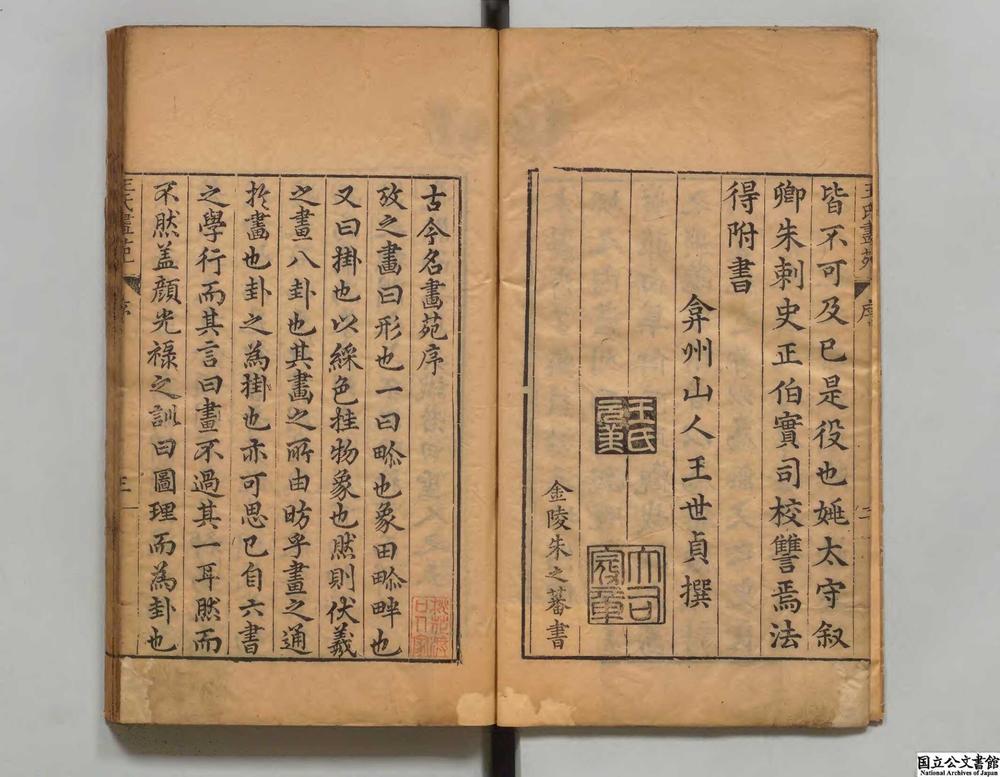 皆不可及已是役也姚太守叙
卿朱刺史正伯實司校讐焉法
得附書
弇州山人王世貞撰
王氏元美
大司寇章
金陵朱之蕃書
王氏畫苑
序
二
古今名畫苑序
攷之畫曰形也一曰畛也象田畛畔也
又曰掛也以綵色挂物象也然則伏羲
之畫八卦也其畫之所由昉乎畫之通
於畫也卦之為掛也亦可思已自六書
之學行而其言曰畫不過其一耳然而
不然盖顔光祿之訓曰圖理而為卦也
王氏畫苑
序
三
国立公文書館
National Archives of Japan